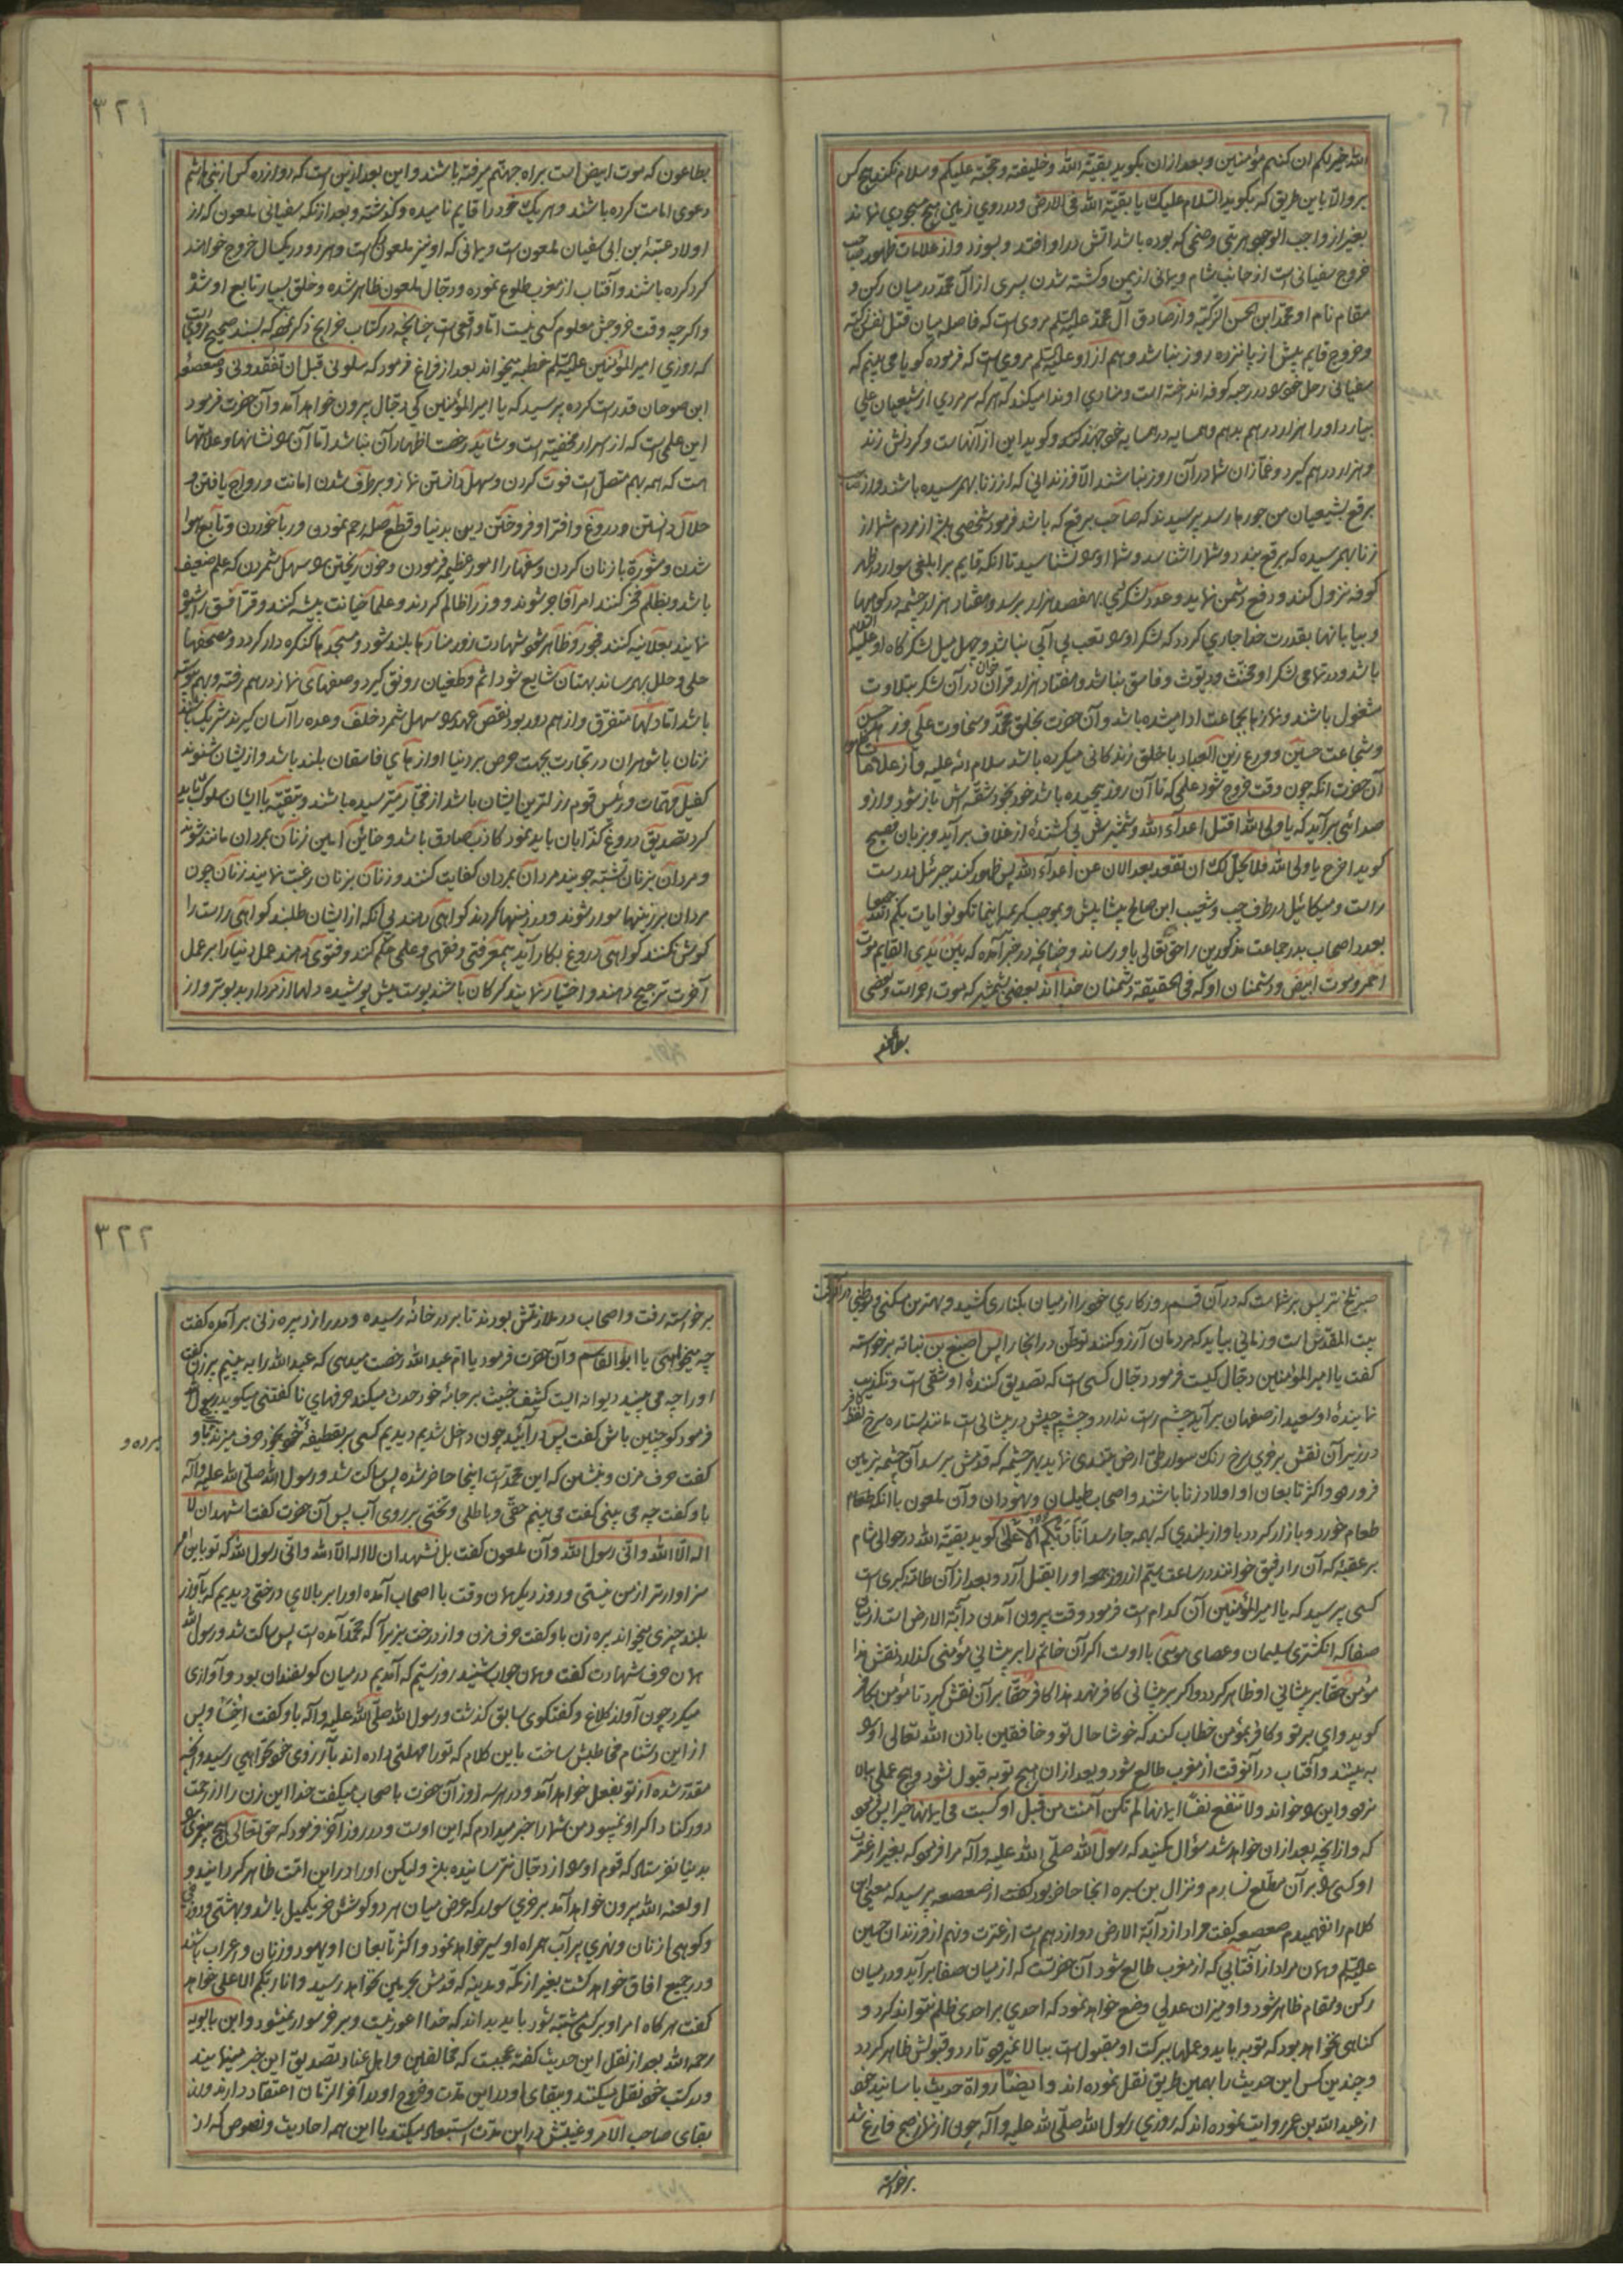 الله خیر لکم ان کنتم مؤمنین و بعد از ان بکوید بقیة الله و خلیفته و حجته علیکم و سلام نکند هیچ کس
برو الا باین طریق که بکوید السلام علیک یا بقیة الله فی الارض و در روی زمین هیچ مسجودی نماند
بغیر از واجب الوجود هر بتی و صنمی که بوده باشد اتش در او افتد و بسوزد و از علامات ظهور صاحب
خروج سفیانی است از جانب شام و یمانی از یمن و کشته شدن پسری از آل محمد در میان رکن و
مقام نام او محمد ابن الحسن الزکیه و از صادق آل محمد علیه السلم مروی است که فاصل میان قتل نفس زکیه
و خروج قایم بیش از پانزده روز نباشد و هم از او علیه السلم مروی است که فرموده کویا می بینم که
سفیانی رحل خود در رحبه کوفه انداخته است و منادی او ندا میکند که هر که سر مردی از شیعیان علی
بیارد او را هزار درهم بدهم و همسایه در همسایه خود جهد کند و کوید این از آنهاست و کردنش زند
و هزار درهم کیرد و غمازان شما در آن روز نباشند الا فرزندانی که از زنا بهم رسیده باشند و از صاحب
برقع بشیعیان من جورها رسد پرسیدند که صاحب برقع که باشد فرمود شخصی باشد از مردم شما از
زنا بهم رسیده که برقع بندد و شما را شناسد و شما او را نشناسید تا انکه قایم بر ابلقی سوار در ظهر
کوفه نزول کند و دفع دشمن نماید و عدد لشکرش بهفصد هزار برسد و هفتاد هزار چشمه در کوهها
و بیابانها بقدرت خدا جاری کردد که لشکر او را تعب بی آبی نباشد و چهل میل لشکرگاه او علیه السلام
باشد و در تمامی لشکر او مخنث و دیوث و فاسق نباشد و هفتاد هزار قرآن خوان در آن لشکر بتلاوت
مشغول باشند و نمازها بجماعت ادا میشده باشد و آن حضرت بخلق محمد و سخاوت علی و زهد حسن
و شجاعت حسین و ورع زین العباد با خلق زندکانی میکرده باشد سلام الله علیه و از علامات
آن حضرت انکه چون وقت خروج شود علمی که تا آن روز پیچیده باشد خود بخود شقه اش باز شود و از و
صدائی برآید که یا ولی الله اقتل اعداء الله و شمشیرش بی کشنده از غلاف برآید و بزبان فصیح
کوید اخرج یا ولی الله فلا یحل لک ان تقعد بعد الان عن اعداء الله پس ظهور کند جبرئیل در دست
راست و میکائیل در طرف چپ و شعیب ابن صالح پیشاپیش و بموجب کریمه اینما تکونوا یات بکم الله جمیعا
بعدد اصحاب بدر جماعت مذکورین را حق تعالی باو رساند و چنانچه در خبر آمده که بین یدی القایم موت
احمر و موت ابیض و دشمنان او که فی الحقیقه دشمنان خدا اند بعضی بشمشیر که موت احمر است و بعضی
بطاعون
٣٢١
بطاعون که موت ابیض است براه جهنم میرفته باشند و این بعد ازین است که دوازده کس از بنی هاشم
دعوی امامت کرده باشند و هر یک خود را قایم نامیده و کذشته و بعد از آنکه سفیانی ملعون که از
اولاد عتبة بن ابی سفیان لمعون است و یمانی که او نیز ملعون است و هر دو در یکسال خروج خواهند
کرد کرده باشند و آفتاب از مغرب طلوع نموده و دجال ملعون ظاهر شده و خلق بسیار تابع او شده
و اکر چه وقت خروجش معلوم کسی نیست اما واقعی است چنانچه در کتاب خرایج ذکر نموده که بسند صحیح مروی است
که روزی امیر المؤمنین علیه السلم خطبه میخواند بعد از فراغ فرمود که سلونی قبل ان تفقدونی و صعصعة
ابن صوحان قد راست کرده پرسید که یا امیر المؤمنین کی دجال بیرون خواهد آمد و آن حضرت فرمود
این علمی است که از اسرار مخفیه است و شاید رخصت اظهار آن نباشد اما آن را نشانها و علامتها
هست که همه بهم متصل است فوت کردن و سهل دانستن نماز و برطرف شدن امانت و رواج یافتن و
حلال دانستن و دروغ و افترا و فروختن دین بدنیا و قطع صله رحم نمودن و ربا خوردن و تابع هوا
شدن و مشورة با زنان کردن و سفها را امور عظیمه فرمودن و خون ریختن را سهل شمردن که علم ضعیف
باشد و بظلم فخر کنند امرا فاجر شوند و وزرا ظالم کردند و علما خیانت پیشه کنند و قرا فسق را شیوه
نمایند بعلانیه کنند فجور و ظاهر شود شهادت زور منارها بلند شود و مسجدها کنکره دار کردد و مصحفها
حلی و حلل بهم رساند بهتان شایع شود اثم و طغیان رونق کیرد و صفهای نماز درهم رفته و بهم پیوسته
باشد اما دلها متفرق و از هم دور بود نقض عهد را سهل شمرد خلف وعده را آسان کیرند شریک باشند
زنان با شوهران در تجارت بجهت حرص بر دنیا اوازهای فاسقان بلند باشد و از یشان شنوند
کفیل مهمات و رئیس قوم رزلترین ایشان باشد از فجار میترسیده باشند و بتقیه با ایشان سلوک باید
کرد تصدیق دروغ کذابان باید نمود کاذب صادق باشد و خائن امین زنان بمردان مانند شوند
و مردان بزنان تشبه جویند مردان بمردان کفایت کنند و زنان بزنان رغبت نمایند زنان چون
مردان بر زینها سوار شوند و در زمینها کردند کواهی دهند بی آنکه از ایشان طلبند کواهی راست را
کوش نکنند کواهی دروغ بکار آید بیمعرفتی و فقهی و علمی حکم کنند و فتوی دهند عمل دنیا را بر عمل
آخرت ترجیح دهند و اختیار نمایند کرکان باشند پوست میش پوشیده دلها از مردار بد بوتر و از
صبر تلخ تر پس بر شماست که در آن قسم روزکاری خود را از میان بکناری کشید و بهترین مسکنی و موطنی در آنوقت
بیت المقدس است و زمانی بیاید که مردمان آرزو کنند توطن در انجا را پس اصبغ بن نباته برخواسته
کفت یا امیر المؤمنین دجال کیست فرمود دجال کسی است که تصدیق کننده او شقی است و تکذیب
نماینده او سعید از صفهان برآید چشم راست ندارد و چشم چپش در پیشانی است مانند ستاره سرخ لفظ کافر
در زیر آن نقش بر خری سرخ رنک سوار طی ارض میتدی نماید بهر چشمه که قدمش برسد آن چشمه بزمین
فرو رود و اکثر تابعان او اولاد زنا باشند و اصحاب طیلسان و یهودان و آن لمعون با انکه طعام
طعام خورد و بازار کردد باواز بلندی که بهمه جا رسد انا ربکم الاعلی کوید بقیة الله در حوالی شام
بر عقبه که آن را رفیق خوانند در ساعت سیم از روز جمعه او را بقتل آرد و بعد از آن طامة کبری است
کسی پرسید که یا امیر المؤمنین آن کدام است فرمود وقت بیرون آمدن دابة الارض است از میان
صفا که انکشتری سلیمان و عصای موسی با اوست اکر آن خاتم را بر پیشانی مؤمنی کذارد نقش هذا
مؤمن حقا بر پیشانی او ظاهر کردد و اکر بر پیشانی کافر نهد هذا کافر حقا بر آن نقش کیرد تا مؤمن بکافر
کوید وای بر تو و کافر بمؤمن خطاب کند که خوشا حال تو و خافقین باذن الله تعالی او را
به بینند و آفتاب در آنوقت از مغرب طالع شود و بعد از ان هیچ توبه قبول نشود و هیچ عملی بالا
نرود و این را خواند و لا تنفع نفسا ایمانها لم تکن آمنت من قبل او کسبت فی ایمانها خیرا پس فرمود
که و از انچه بعد از ان خواهد شد سؤال مکنید که رسول الله صلی الله علیه و آله مرا فرموده که بغیر از عترت
او کسی را بر آن مطلع نسازم و نزال بن سبره انجا حاضر بود کفت از صعصعه پرسید که معنی این
کلام را نفهمیدم صعصعه کفت مراد از دابة الارض دوازدهم است از عترت و نهم از فرزندان حسین
علیه السلم و همان مراد از آفتابی که از مغرب طالع شود آن حضرتست که از میان صفا برآید و در میان
رکن و مقام ظاهر شود و او میزان عدلی وضع خواهد نمود که احدی بر احدی ظلم نتواند کرد و
کناهی نخواهد بود که توبه باید و عملها ببرکت او مقبول است ببالا نمیرود تا رد و قبولش ظاهر کردد
و چندین کس این حدیث را بهمین طریق نقل نموده اند و ایضا رواة حدیث باسانید خود
از عبد الله بن عمر روایت نموده اند که روزی رسول الله صلی الله علیه و آله چون از نماز صبح فارغ شد
برخواسته
٣٢٢
برخواسته رفت و اصحاب در ملازمتش بودند تا بدر خانه رسیده و در زد از پیره زنی برآمده کفت
چه میخواهی یا ابو القاسم و آن حضرت فرمود یا ام عبد الله رخصت میدهی که عبد الله را به بینم پیرزن کفت
او را چه می بینید دیوانه ایست کثیف خبیث بر جائه خود حدث میکند حرفهای ناکفتنی میکوید رسول
فرمود کو چنین باش کفت پس درآئید چون داخل شدیم دیدیم کسی بر قطیفه خود بخود حرف میزند باو
برده و
کفت حرف مزن و بنشین که این محمد است اینجا حاضر شده پس ساکت شد و رسول الله صلی الله علیه و آله
باو کفت چه می بینی کفت می بینم حقی و باطلی و تختی بر روی آب پس آن حضرت کفت اشهد ان لا
اله الا الله و انی رسول الله و آن ملعون کفت بل تشهد ان لا اله الا الله و انی رسول الله که تو باین امر
سزاوارتر از من نیستی و روز دیکر همان وقت با اصحاب آمده او را بر بالای درختی دیدیم که باواز
بلند چیزی میخواند پیره زن باو کفت حرف مزن و از درخت بزیر آ که محمد آمده است پس ساکت شد و رسول الله
همان حرف شهادت کفت و همان جواب شنید روز سیم که آمدیم در میان کوسفندان بود و آوازی
میکرد چون آواز کلاغ و کفتکوی سابق کذشت و رسول الله صلی الله علیه و آله باو کفت اخسا و پس
از این دشنام مخاطبش ساخت باین کلام که تو را مهلتی داده اند بآرزوی خود نخواهی رسید و آنچه
مقدر شده از تو بفعل خواهد آمد و در هر سه روز آن حضرت باصحاب میکفت خدا این زن را از رحمت
دور کناد اکر او نمیبود من شما را خبر میدادم که این اوست و در روز آخر فرمود که حق تعالی هیچ پیغمبری را
بدنیا نفرستاد که قوم او را از دجال نترسانیده باشد و لیکن او را در این امت ظاهر کردانید و
او لعنه الله بیرون خواهد آمد بر خری سوار که عرض میان هر دو کوشش خر یکمیل باشد و بهشتی و دوزخی
و کوهی از نان و نهری پر آب همراه او سیر خواهد نمود و اکثر تابعان او یهود و زنان و اعراب باشند
و در جمیع افاق خواهد کشت بغیر از مکه و مدینه که قدمش بحرمین نخواهد رسید و انا ربکم الاعلی خواهد
کفت هر کاه امر او بر کسی مشتبه شود باید بداند که خدا اعور نیست و بر خر سوار نمیشود و ابن بابویه
رحمه الله بعد از نقل این حدیث کفته عجبست که مخالفین و اهل عناد تصدیق این خبر مینمایند
و در کتب خود نقل میکنند و ببقای او در این مدت و خروج او در آخر الزمان اعتقاد دارند و از
بقای صاحب الامر و غیبتش در این مدت استبعاد میکنند با این همه احادیث و نصوص که از